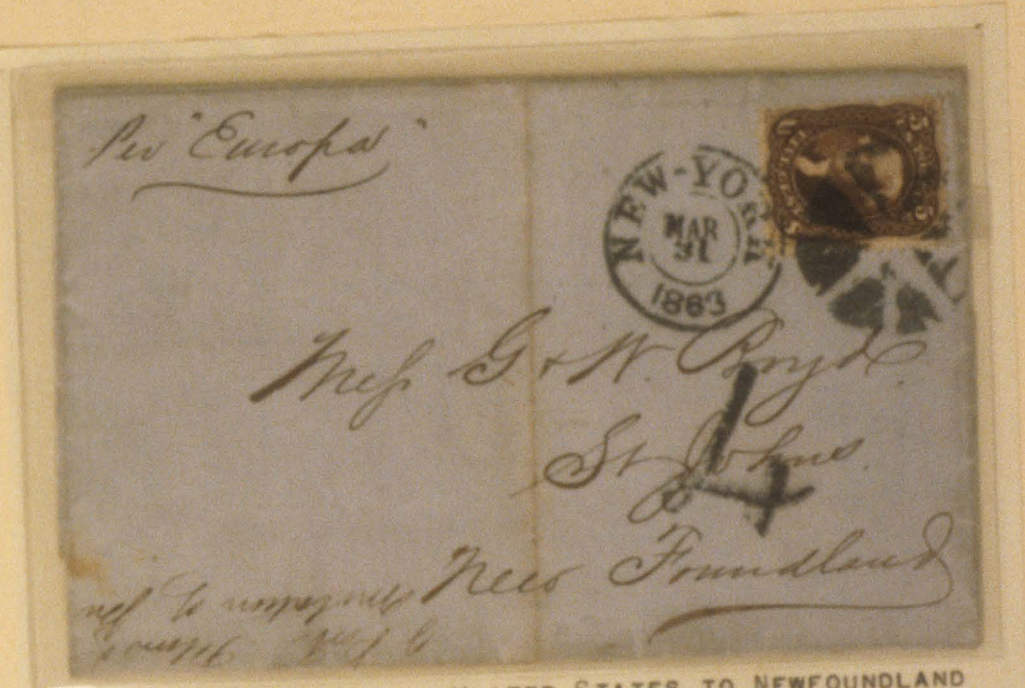 Per "Europa"
NEW-YORK
MAR
31
1863
5 5
Mess G & W. Boyd.
St Johns.
4
New Foundland
STATES TO NEWFOUNDLAND